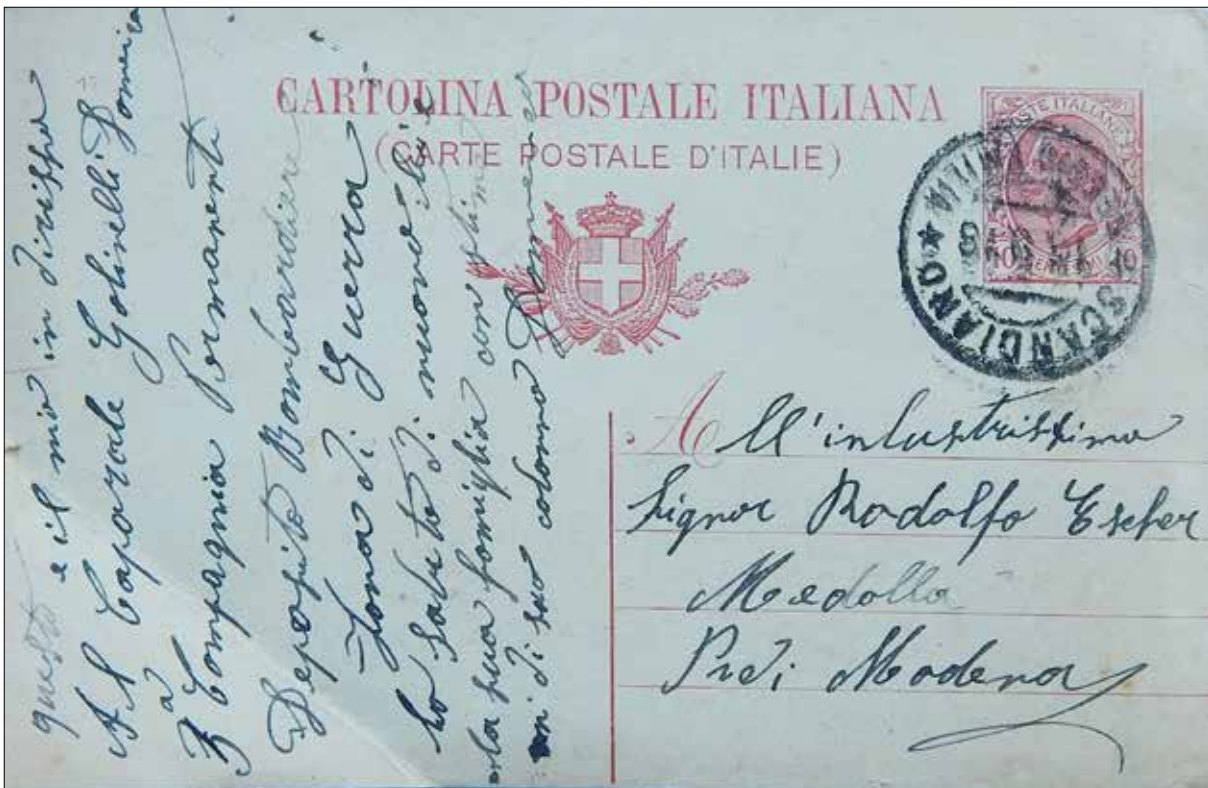 CARTOLINA POSTALE ITALIANA
(CARTE POSTALE D'ITALIE)
POSTE ITALIANE
10 10
SCANDIANO
EMILIA
All'inlustrissimo
Signor Rodolfo Escher
Medolla
Pr di Modena
questo e il mio in dirisso
Al Caporale Golinelli
Compagnia Permanenti
Deposito Bombardieri
Zona di Guerra
lo Saluto di nuovo lei e
la sua famiglia
mi di suo colonno Domenico